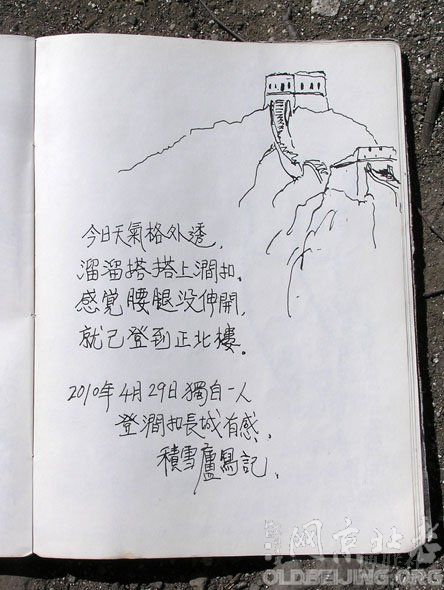 今日天氣格外透,
溜溜搭搭上澗扣。
感覺腰腿没伸開,
就已登到正北樓。
2010年4月29日獨自一人
登澗扣長城有感、
積雪廬寫記、
老北京网
OLDBEIJING.ORG